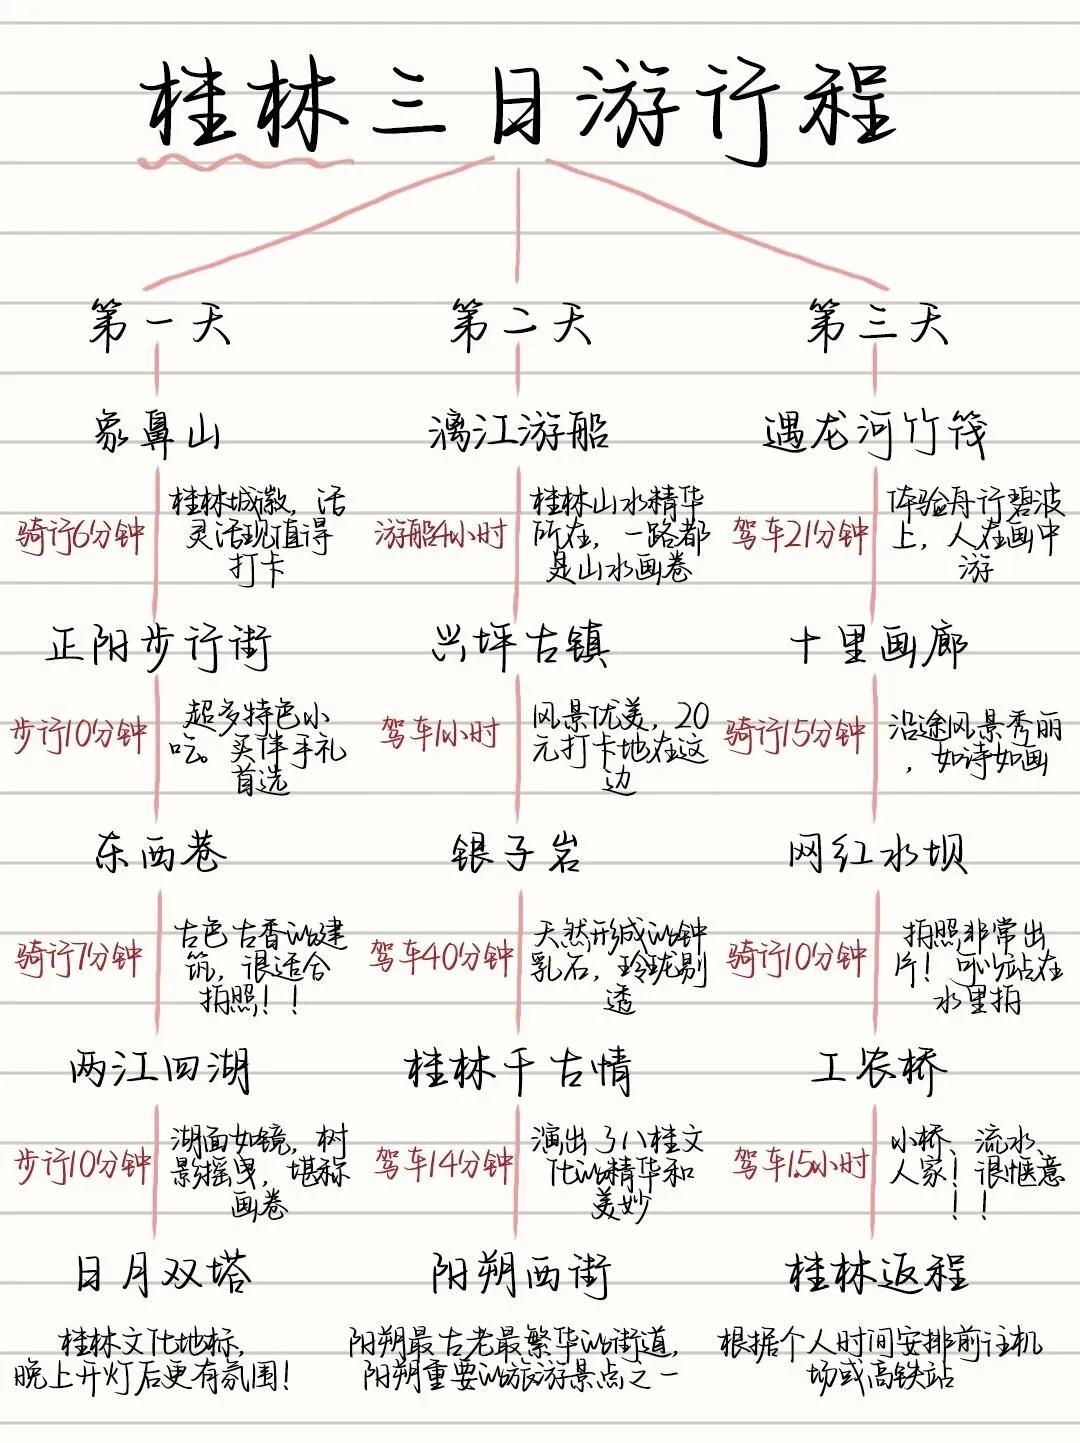 桂林三日游行程
第一天
象鼻山
骑行6分钟
桂林城徽，活
灵活现值得
打卡
正阳步行街
步行10分钟
超多特色小
吃。买伴手礼
首选
东西巷
骑行7分钟
古色古香的建
筑，很适合
拍照！！
两江四湖
步行10分钟
湖面如镜，树
影摇曳，堪称
画卷
日月双塔
桂林文化地标，
晚上开灯后更有氛围！
第二天
漓江游船
游船4小时
桂林山水精华
所在，一路都
是山水画卷
兴坪古镇
驾车1小时
风景优美，20
元打卡地在这
边
银子岩
驾车40分钟
天然形成的钟
乳石，玲珑剔
透
桂林千古情
驾车14分钟
演出了八桂文
化的精华和
美妙
阳朔西街
阳朔最古老最繁华的街道，
阳朔重要的旅游景点之一
第三天
遇龙河竹筏
驾车21分钟
体验舟行碧波
上，人在画中
游
十里画廊
骑行15分钟
沿途风景秀丽
，如诗如画
网红水坝
骑行10分钟
拍照非常出
片！可以站在
水里拍
工农桥
驾车1.5小时
小桥、流水、
人家！很惬意
！！
桂林返程
根据个人时间安排前往机
场或高铁站